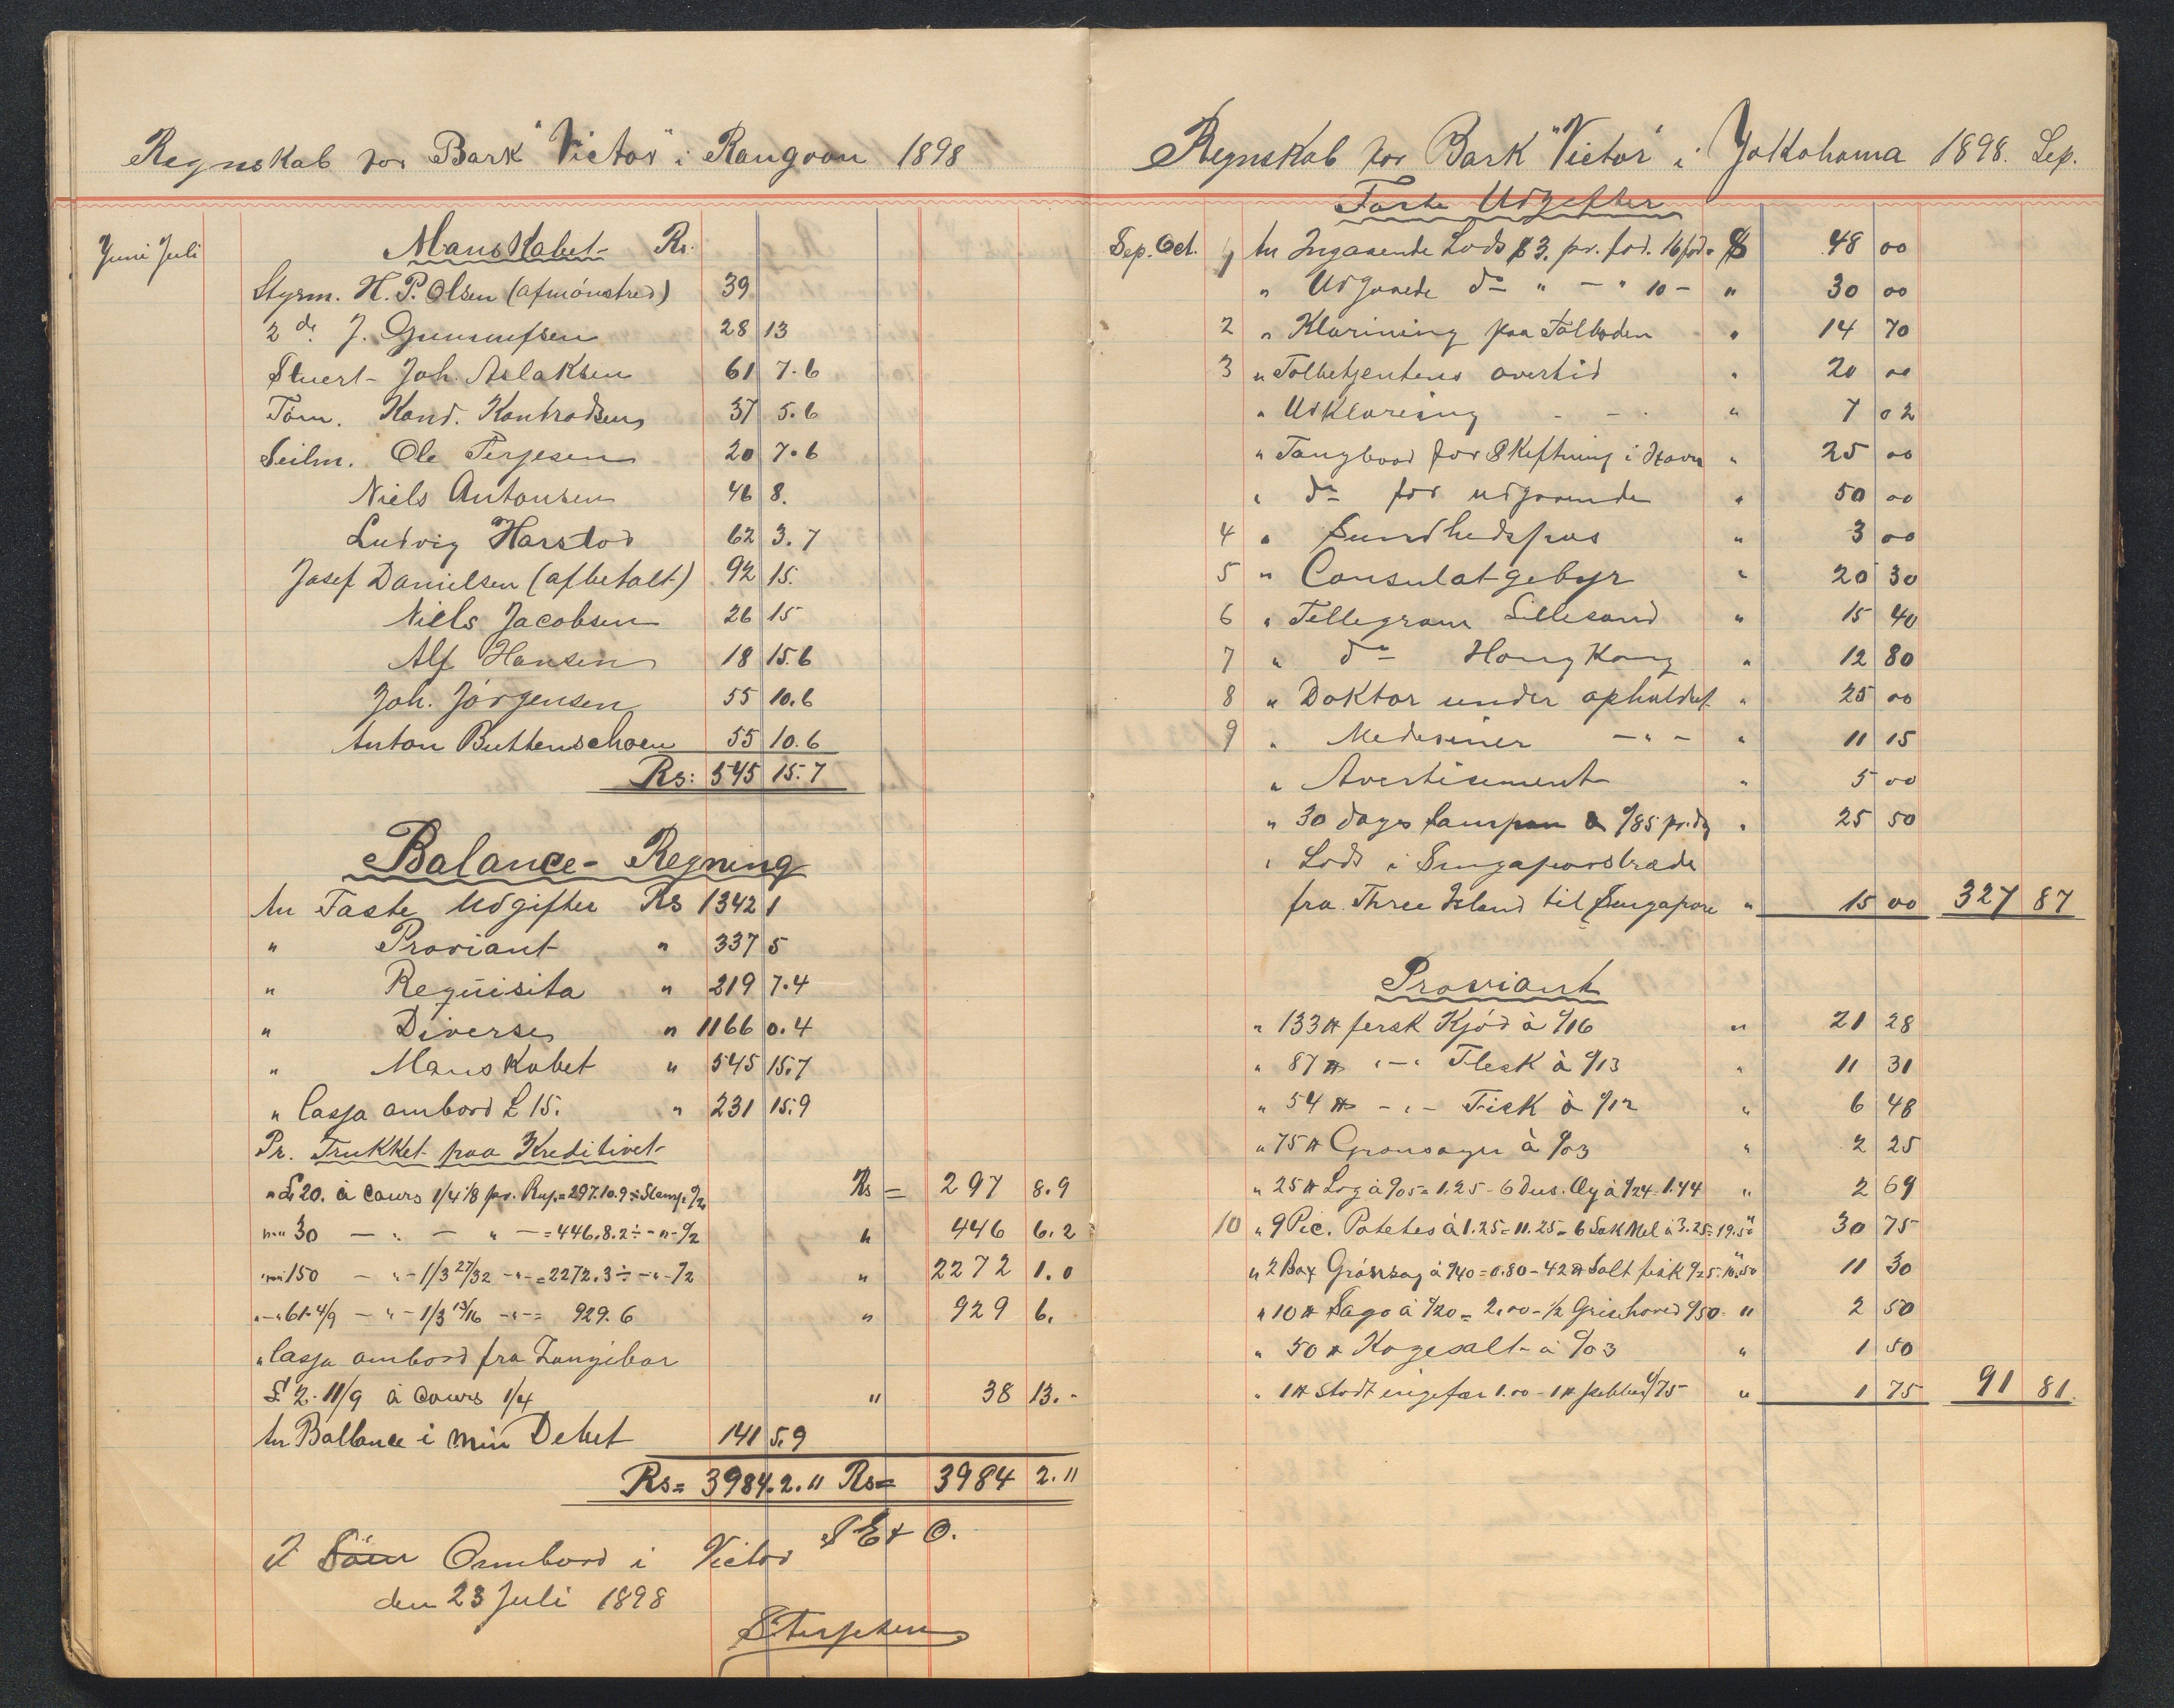 Regnskab for Bark "Victor" i Rangoon 1898
Juni Juli
Manskabet Rs.
Styrm. H. P. Olsen (afmönstred) 39
2 de J. Gunnufsen 28 13
Stuert - Joh. Aslaksen 61 7.6
Töm. Kond. Konhradsen 37 5.6
Seilm. Ole Terjesen 20 7.6
Niels Antonsen 46 8.
Ludvig Harstod 62 3.7
Josef Danielsen (afbetalt) 92 15.
Niels Jacobsen 26 15
Alf Hansen 18 15.6
Joh. Jörgensen 55 10.6
Anton Buttenschoen 55 10.6
Rs: 545 15.7
Balance - Regning
An Faste Udgifter Rs 1342 1
" Proviant " 337 5
" Requisita " 219 7.4
" Diverse " 1166 0.4
" Manskabet " 545 15.7
" Cassa ombord £ 15. " 231 15.9
Pr. Trukket paa Kreditivet
" £ 20. à Cours 1/4 1/8 pr. Rup. = 297.10.9 ÷ Stemp. %2 Rs = 297 8.9
" " 30 — " — " — = 446.8.2 ÷ - " - %2 " 446 6.2
" " 150 — " - 1/3 27/32 - " - = 2272.3 ÷ - " - /2 " 2272 1.0
" - " 61-4/9 - " - 1/3 13/16 - " - = 929.6 " 929 6.
" Cassa ombord fra Zanzibar
£ 2-11/9 à Cours 1/4 " 38 13.-
An Ballance i min Debet 141 5.9
Rs= 3984.2.11 Rs= 3984 2.11
S E & O.
I Söen Ombord i Victor
den 23 Juli 1898
S Terjesen
Regnskab for Bark "Victor" i Jokohama 1898. Sep.
Faste Udgifter
Sep. Oct. 1 An Ingaaende Lods $ 3. pr. fod. 16 fod = $ 48 00
" Udgaaende do " - " 10 - " 30 00
2 " Klarining paa Tolboden " 14 70
3 " Tolbetjentens overtid " 20 00
" Udklarering - - - " 7 02
" Taugbaad for Skiftning i Havn " 25 00
" do for udgaaende " 50 00
4 " Sundhedspas " 3 00
5 " Consulatgebyr " 20 30
6 " Tellegram Lillesand " 15 40
7 " do Hong Kong " 12 80
8 " Doktor under opholdet " 25 00
9 " Medesiner - " - " 11 15
" Avertisement " 5 00
" 30 dages Sampan a %85 pr. dg " 25 50
" Lods i Singaporstrade
fra Three Island til Singapore " 15 00 327 87
Proviant
" 133 ℔ fersk Kjöd à %16 " 21 28
" 87 ℔ " - " Flesk à %13 " 11 31
" 54 ℔ - " - Fisk à %12 " 6 48
" 75 ℔ Gronsager à %03 " 2 25
" 25 ℔ Log à %05 = 1.25 - 6 dus. Æg à %24 = 1.44 " 2 69
10 " 9 Pic. Potetes à 1.25 = 11.25 - 6 Sak Mel à 3.25 = 19.50 30 75
" 2 Box Grönsag à %40 = 0.80 - 42 ℔ Salt fisk %25. 10.50 11 30
" 10 ℔ Sago à %20 = 2.00 - ½ Grisehoved %50 " 2 50
" 50 ℔ Kogesalt à %03 " 1 50
" 1 ℔ stodt ingefær 1.00 - 1 ℔ pebber %75 " 1 75 91 81.